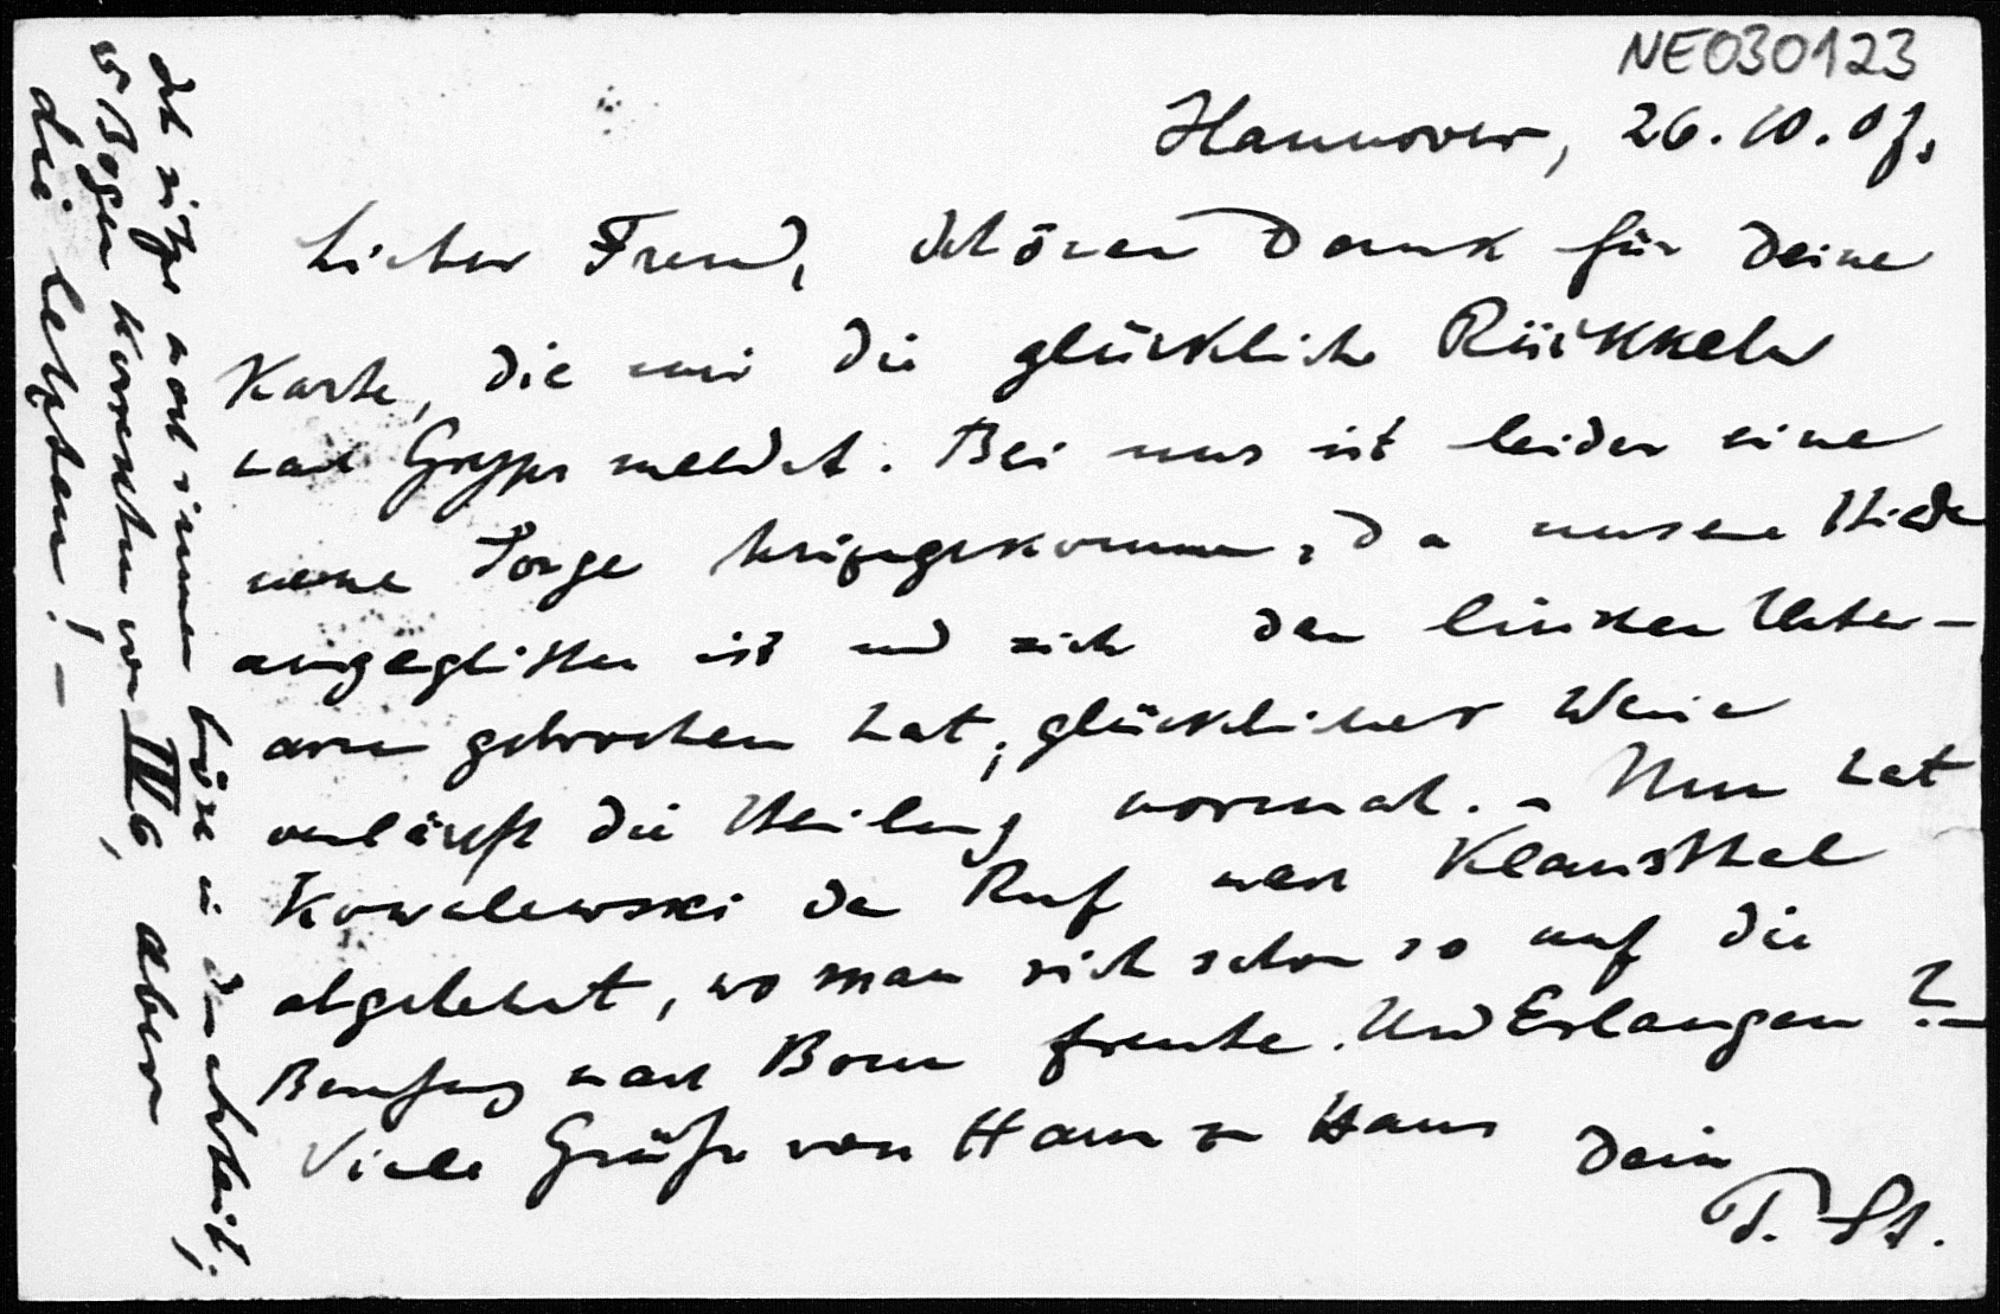 NE030123
Hannover, 26.10.07.
Lieber Freund, schönen Dank für Deine
Karte, die mir die glückliche Rückkehr
nach Gryps meldet. Bei uns ist leider eine
neue Sorge hinzugekommen, da unsere
ausgeglitten ist und sich den linken Unter-
arm gebrochen hat; glücklicher Weise
verläuft die Heilung normal. – Nun hat
Kowalewski den Ruf nach Klausthal
abgelehnt, wo man sich schon so auf die
Berufung nach Bonn freute. Und Erlangen? –
Viele Grüße von Haus zu Haus
Dein
P. St.
Ich sitze noch immer böse in der Arbeit;
Bogen Korrektur von III6, aber
die letzten! –